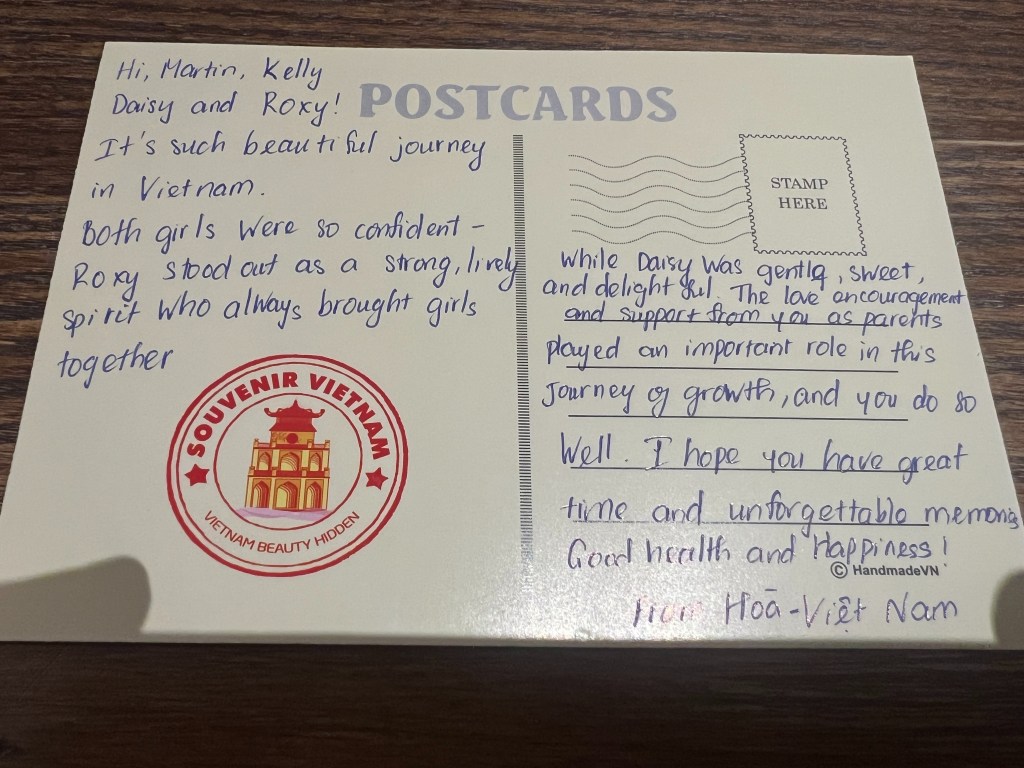 Hi, Martin, Kelly
Daisy and Roxy!
It's such beautiful journey
in Vietnam.
Both girls were so confident -
Roxy stood out as a strong, lively
spirit who always brought girls
together
SOUVENIR VIETNAM
VIETNAM BEAUTY HIDDEN
POSTCARDS
STAMP
HERE
While Daisy was gentle, sweet,
and delightful. The love encouragement
and support from you as parents
played an important role in this
journey of growth, and you do so
Well. I hope you have great
time and unforgettable
Good health and Happiness!
© HandmadeVN
from Hoà - Việt Nam